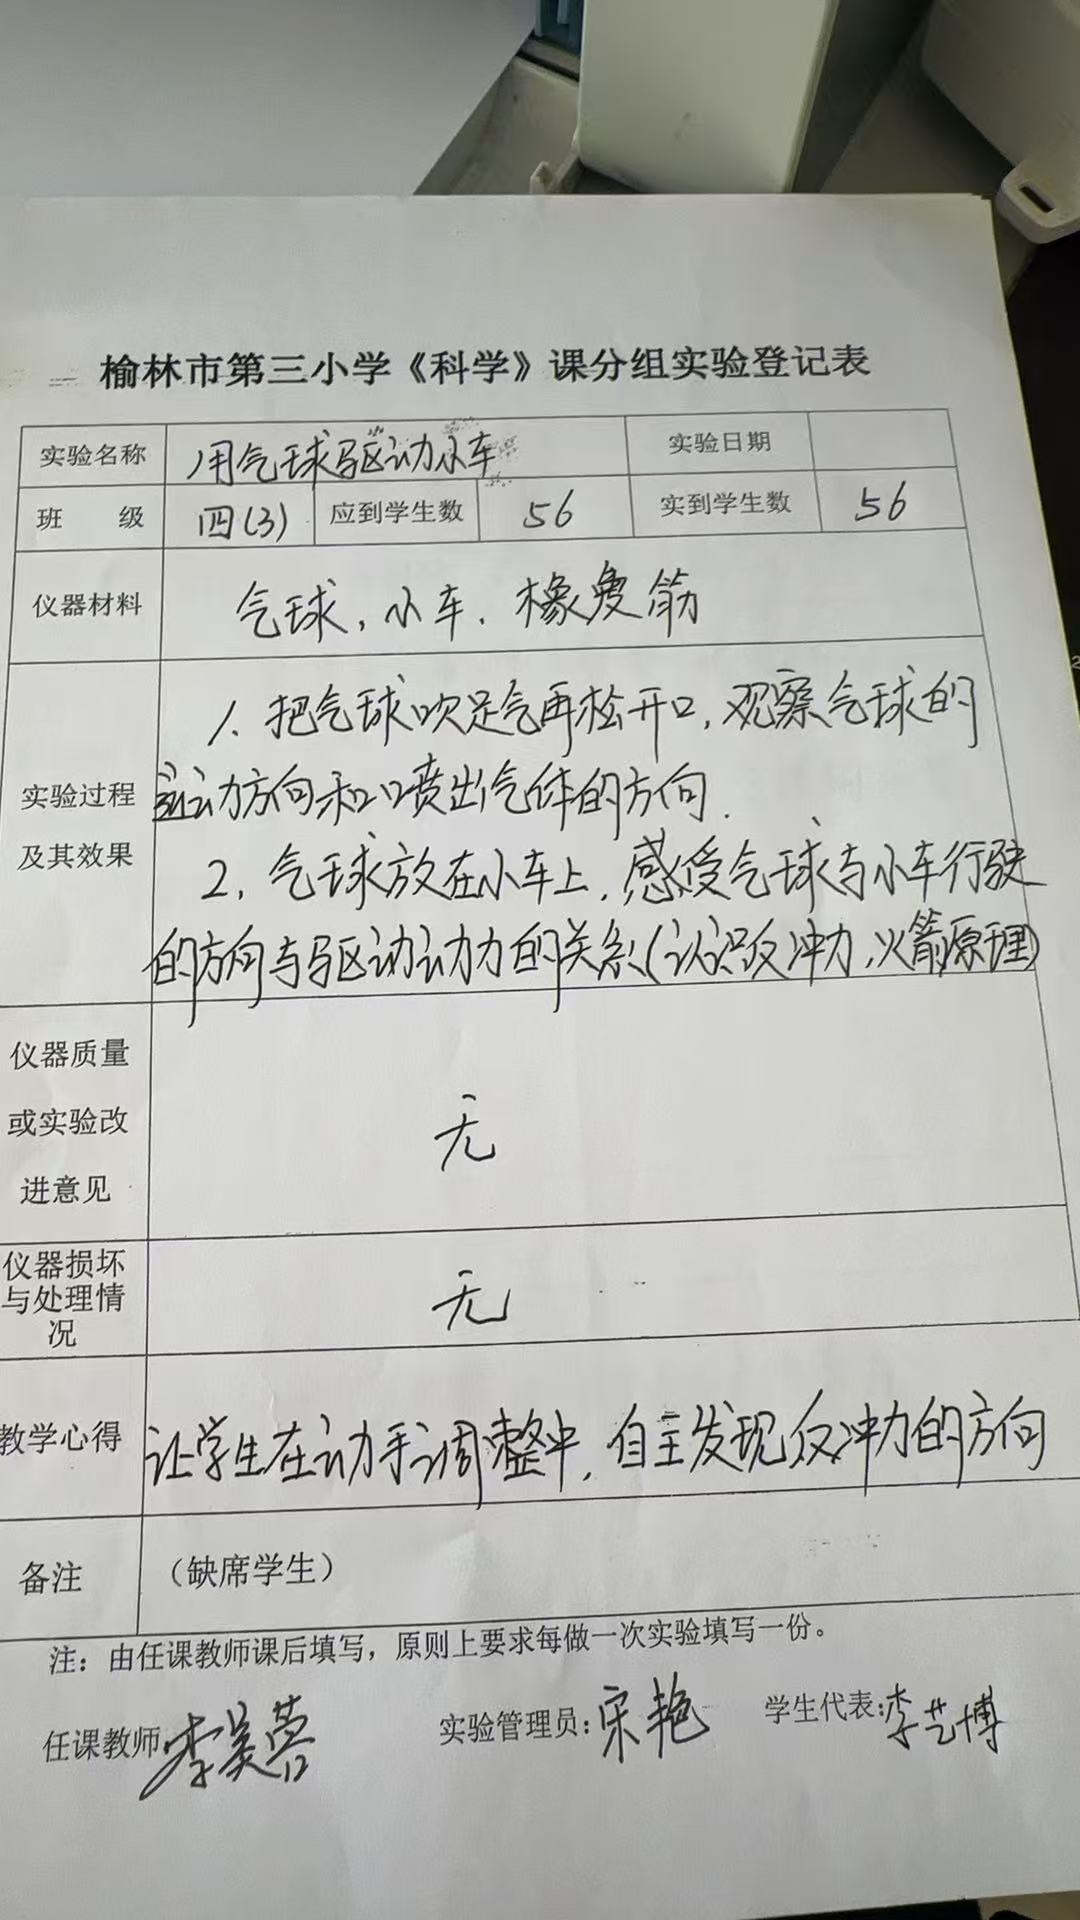 榆林市第三小学《科学》课分组实验登记表
实验名称 用气球驱动小车 实验日期
班 级 四(3) 应到学生数 56 实到学生数 56
仪器材料 气球,小车,橡皮筋
1、把气球吹足气再松开口,观察气球的
实验过程 运动方向和口喷出气体的方向.
及其效果
2,气球放在小车上,感受气球与小车行驶
的方向与驱动动力的关系(认识反冲力,火箭原理)
仪器质量
或实验改 无
进意见
仪器损坏
与处理情 无
况
教学心得 让学生在动手调整中,自主发现反冲力的方向
备注 (缺席学生)
注:由任课教师课后填写,原则上要求每做一次实验填写一份。
任课教师 李美蓉 实验管理员:宋艳 学生代表:李艺博